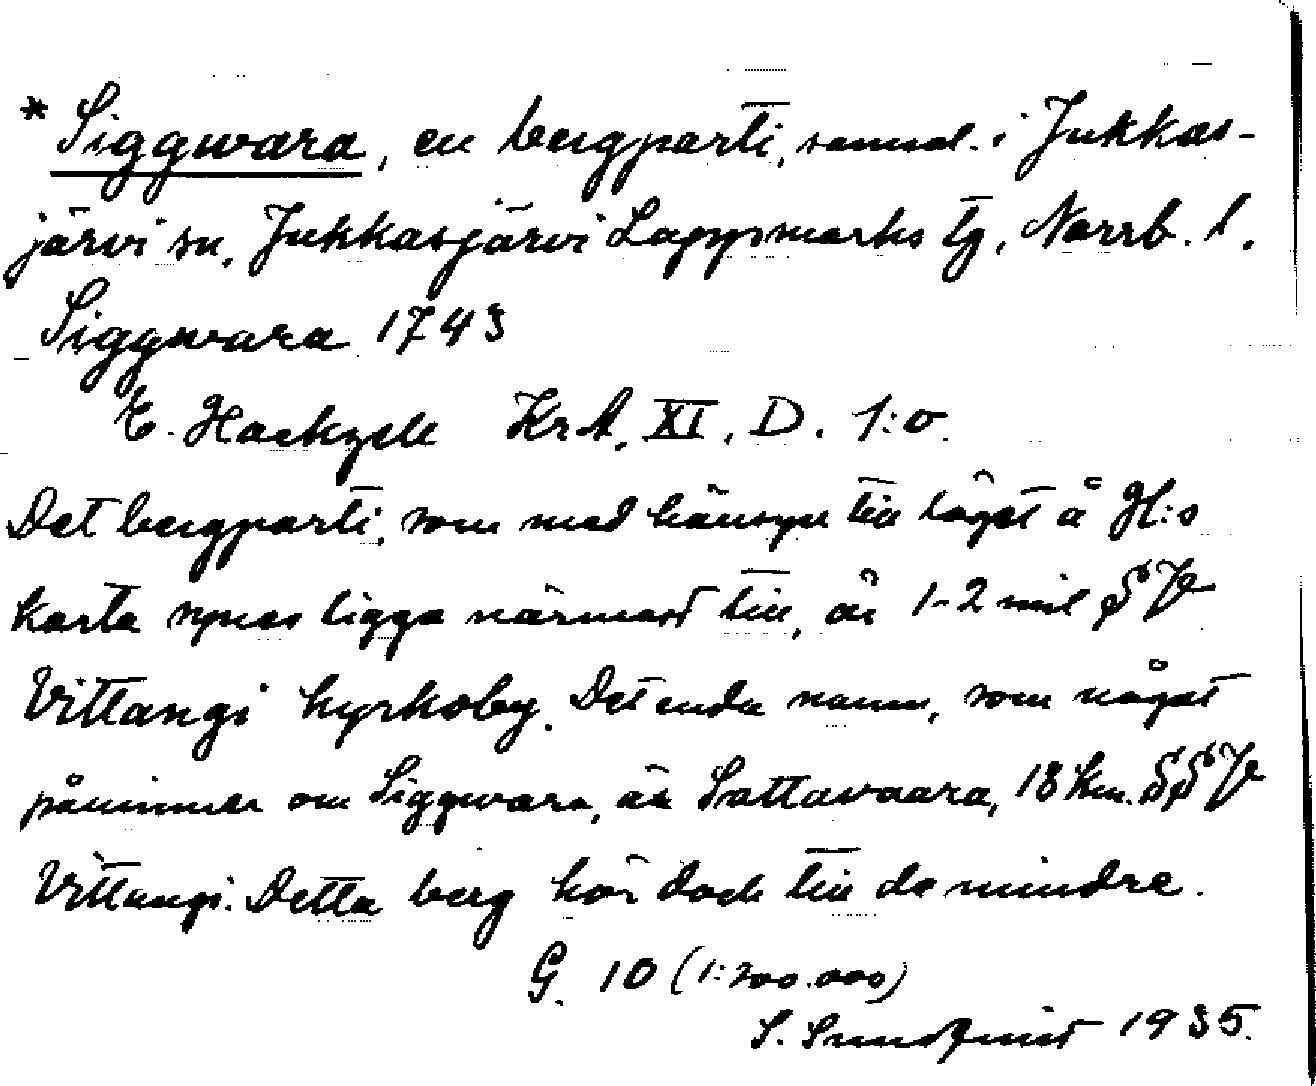 * Siggwara, en bergparti, samml. i Jukkas-
järvi sn, Jukkasjärvi Lappmarks tg, Norrb. l.
Siggwara 1743
E. Hackzell KrA, XI, D. 1:o.
Det bergparti, som med hänsyn till läget å H:s
karta synes ligga närmast till, är 1-2 mil SV
Vittangi kyrkoby. Det enda namn, som något
påminner om Siggwara, är Sattavaara, 18 km. SSV
Vittangi. Detta berg hör dock till de mindre.
G. 10 (1:200.000)
S. Sundqvist 1935.